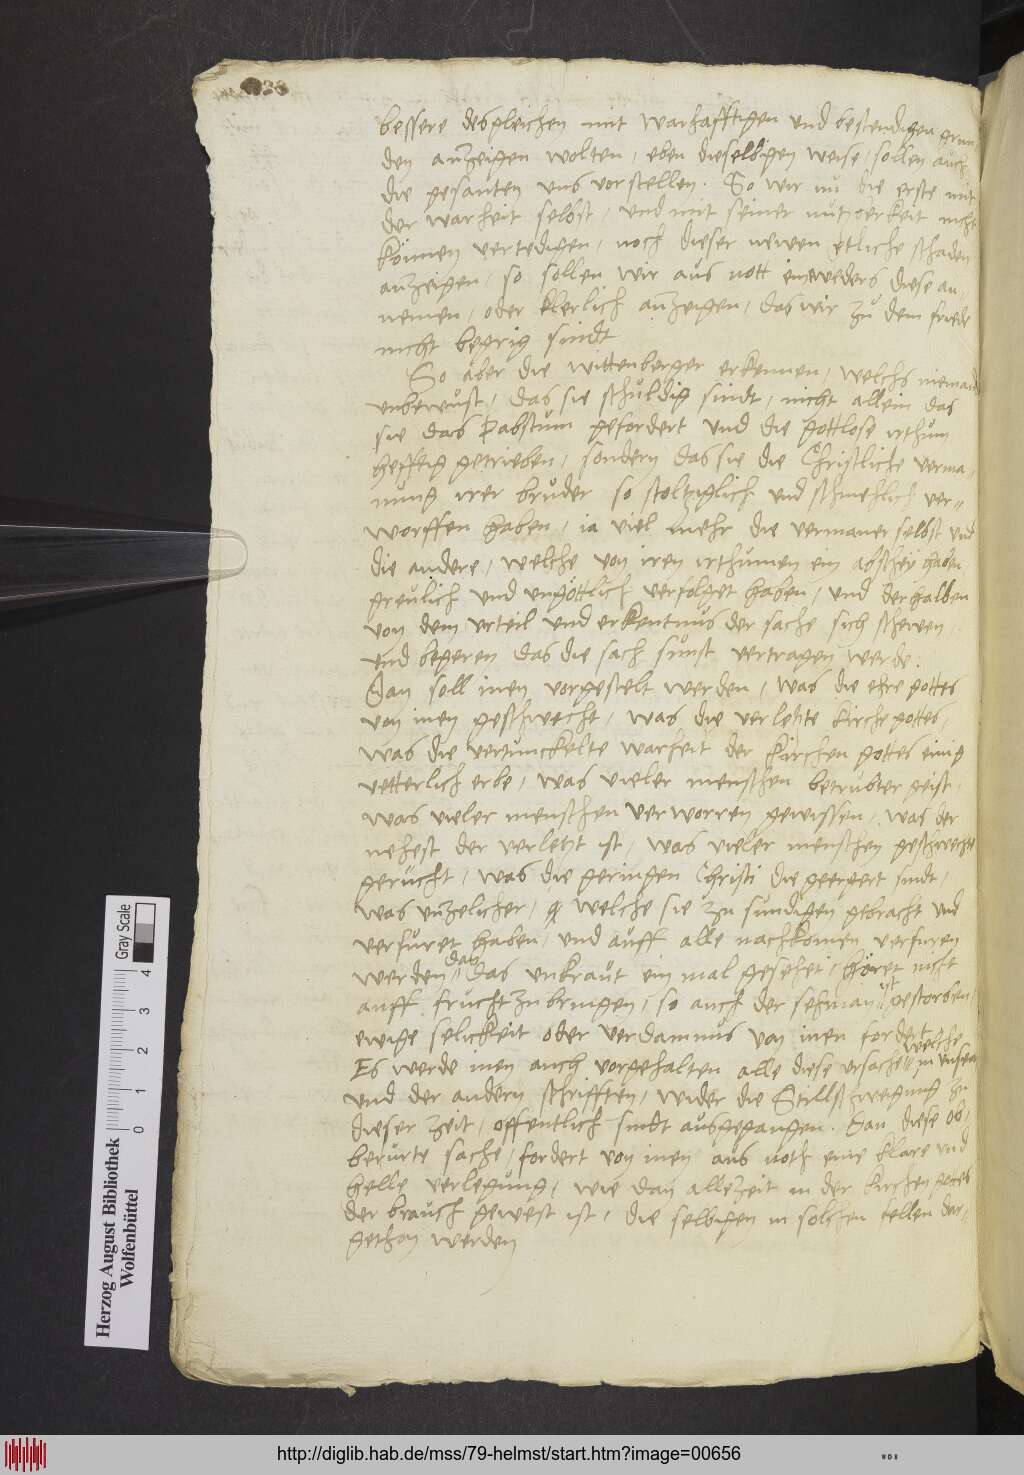 bessere desgleichen mit warhafftigen und bestendigen grun
den anzeigen wolten, eben dieselbigen weise, sollen auch
die gesanten uns vorstellen. So wir nu die erste mit
der warheit selbst, und mit seiner nutzberkeit nicht
können vertedigen, noch dieser newen etliche schaden
anzeigen, so sollen wir aus nott entweders diese an,
nemen, oder klerlich anzeigen, das wir zu dem friede
nicht begirig sindt
So aber die wittenberger erkennen, welchs niemand
unbewust, das sie schuldig sindt, nicht allein das
sie das Pabstum gefordert und die gottlose irthum
hefftig getrieben, sondern das sie die Christliche verma,
nung irer bruder so stoltziglich und schmehlich ver,,
worffen haben, ia viel mehr die vermaner selbst und
die andere, welche von iren irthumen ein abscheü haben
greulich und ungöttlich verfolget haben, und derhalben
von dem urteil und erkentnus der sache sich schewen,
und begeren das die sach sunst vertragen werde:
Dan soll inen vorgestelt werden, was die ehre gottes
von inen geschwecht, was die verletzte kirche gottes,
was die vertunckelte warheit der kirchen gottes einig
vetterlich erbe, was vieler menschen betrubter geist,
was vieler menschen verworren gewissen, was der
nehest der verletzt ist, was vieler menschen geschwechte
gerucht, was die geringen Christi die geergert sindt,
was unzelicher, welche sie zu sundigen gebracht und
verfuret haben, und auff alle nachkomen verfuren
werden das das unkraut ein mal gesehet, höret nicht
auff frucht zu bringen, so auch der sehman ist gestorben,
ewige selickeit oder verdamnus von inen fordert.
Es werde inen auch vorgehalten alle diese ursache welche in unsern
und der andern schrifften, wider die Stillschweigung zu
dieser zeit, offentlich sindt ausgegangen. Dan diese ob,
berurte sache, fordert von inen aus noth eine klare und
helle verlegung, wie dan allezeit in der kirchen gottes
der brauch gewest ist, die selbigen in solchen fellen dar,
gethan werden
Herzog August Bibliothek
Wolfenbüttel
Gray Scale
0 1 2 3 4
http://diglib.hab.de/mss/79-helmst/start.htm?image=00656